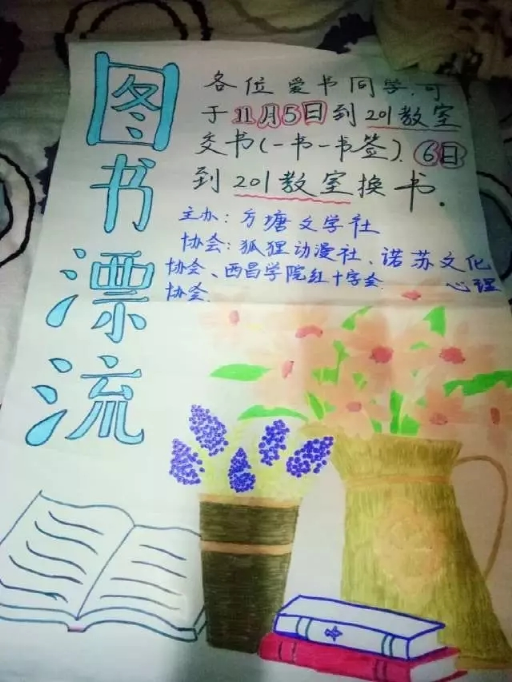 图书漂流
各位爱书同学.可
于11月5日到201教室
交书(一书一书签).6日
到201教室换书.
主办:方塘文学社
协会:狐狸动漫社、诺苏文化
协会、西昌学院红十字会 心理
协会